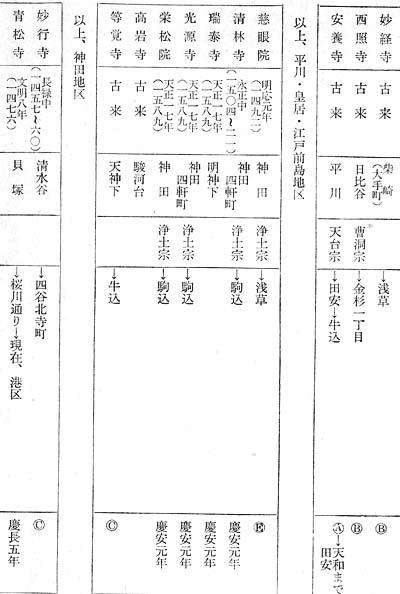 妙経寺 古来 柴崎(大手町) →浅草 Ⓑ
西照寺 古来 日比谷 曹洞宗 →金杉一丁目 Ⓑ
安養寺 古来 平川 天台宗 →田安→牛込 Ⓐ→天和まで田安
以上、平川・皇居・江戸前島地区
慈眼院 明応元年(一四九二) 神田 浄土宗 →浅草 Ⓔ
清林寺 永正中(一五〇四〜二一) 神田四軒町 浄土宗 →駒込 慶安元年
瑞泰寺 天正一七年(一五八九) 明神下 慶安元年
光源寺 天正一七年(一五八九) 神田四軒町 浄土宗 →駒込 慶安元年
栄松院 天正一七年(一五八九) 神田 浄土宗 →駒込 慶安元年
高岩寺 古来 駿河台
等覚寺 古来 天神下 →牛込 Ⓒ
以上、神田地区
妙行寺 長禄中(一四五七〜六〇) 清水谷 →四谷北寺町 Ⓒ
青松寺 文明八年(一四七六) 貝塚 →桜川通り→現在、港区 慶長五年